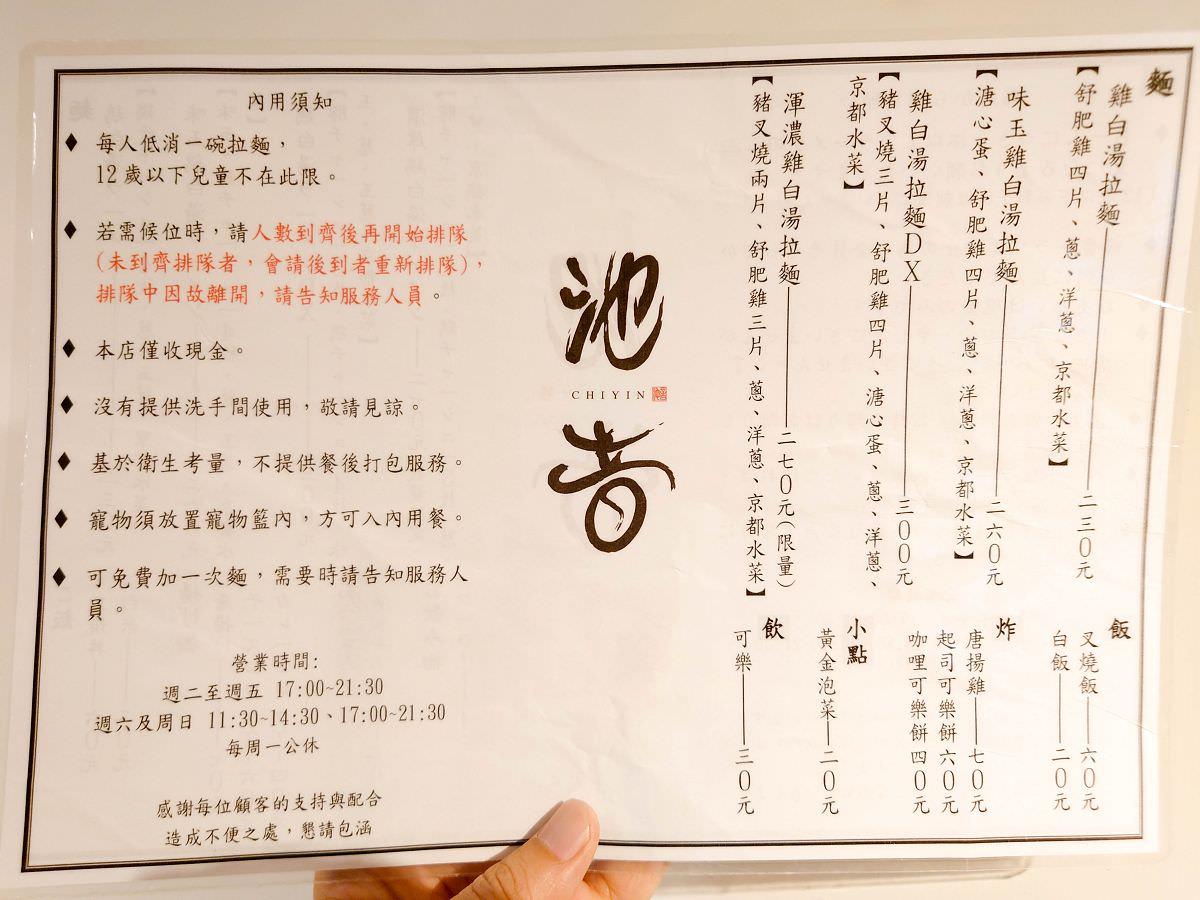 麵
雞白湯拉麵 二三0元
【舒肥雞四片、蔥、洋蔥、京都水菜】
味玉雞白湯拉麵 二六0元
【溏心蛋、舒肥雞四片、蔥、洋蔥、京都水菜】
雞白湯拉麵DX 三00元
【豬叉燒三片、舒肥雞四片、溏心蛋、蔥、洋蔥、
京都水菜】
渾濃雞白湯拉麵 二七0元(限量)
【豬叉燒兩片、舒肥雞三片、蔥、洋蔥、京都水菜】
飯
叉燒飯 六0元
白飯 二0元
炸
唐揚雞 七0元
起司可樂餅六0元
咖哩可樂餅四0元
小點
黃金泡菜 二0元
飲
可樂 三0元
池
CHIYIN
音
內用須知
♦ 每人低消一碗拉麵，
12歲以下兒童不在此限。
♦ 若需候位時，請人數到齊後再開始排隊
(未到齊排隊者，會請後到者重新排隊)，
排隊中因故離開，請告知服務人員。
♦ 本店僅收現金。
♦ 沒有提供洗手間使用，敬請見諒。
♦ 基於衛生考量，不提供餐後打包服務。
♦ 寵物須放置寵物籃內，方可入內用餐。
♦ 可免費加一次麵，需要時請告知服務人
員。
營業時間:
週二至週五 17:00~21:30
週六及周日 11:30~14:30、17:00~21:30
每周一公休
感謝每位顧客的支持與配合
造成不便之處，懇請包涵